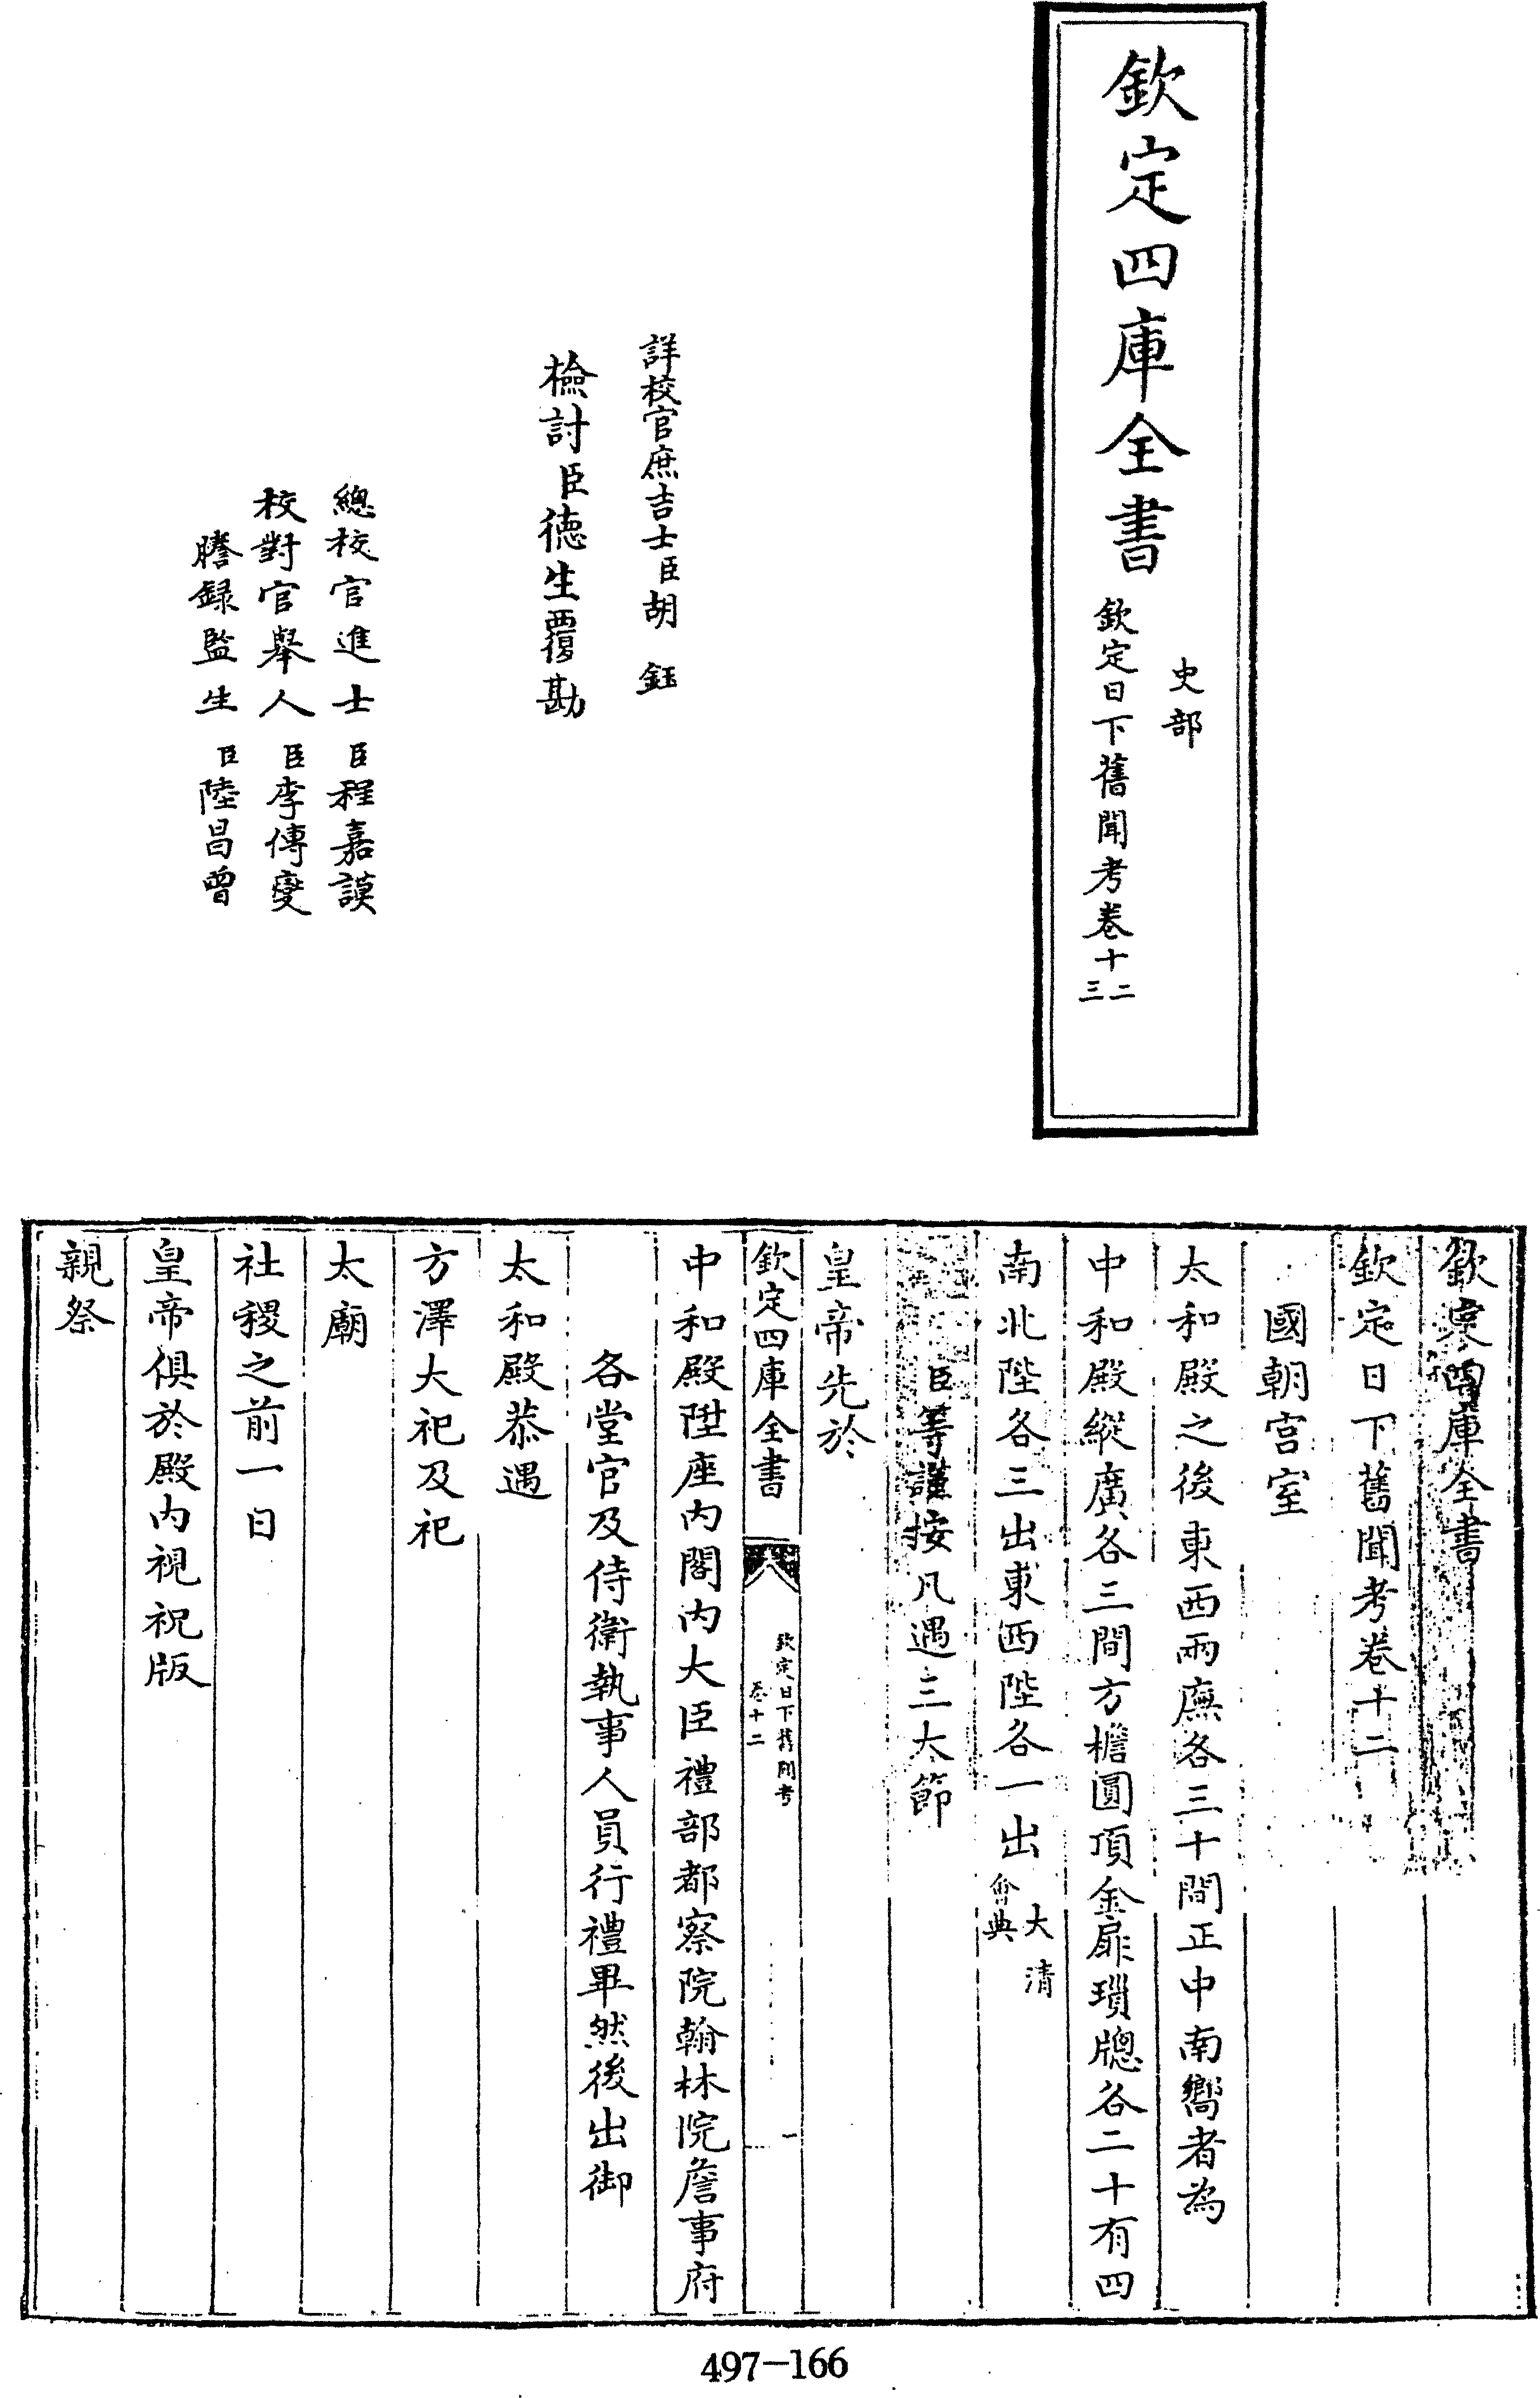 欽定四庫全書
史部
欽定日下舊聞考卷十二
三
詳校官庶吉士臣胡鈺
檢討臣德生覆勘
總校官進士臣程嘉謨
校對官舉人臣李傳燮
謄録監生臣陸昌曾
欽定四庫全書
欽定日下舊聞考卷十二
國朝宫室
太和殿之後東西兩廡各三十間正中南嚮者為
中和殿縱廣各三間方檐圓頂金扉瑣牕各二十有四
南北陛各三出東西陛各一出大清
會典
臣等謹按凡遇三大節
皇帝先於
欽定四庫全書
欽定日下舊聞考
卷十二
一
中和殿陞座内閣内大臣禮部都察院翰林院詹事府
各堂官及侍衛執事人員行禮畢然後出御
太和殿恭遇
方澤大祀及祀
太廟
社稷之前一日
皇帝俱於殿内視祝版
親祭
497-166